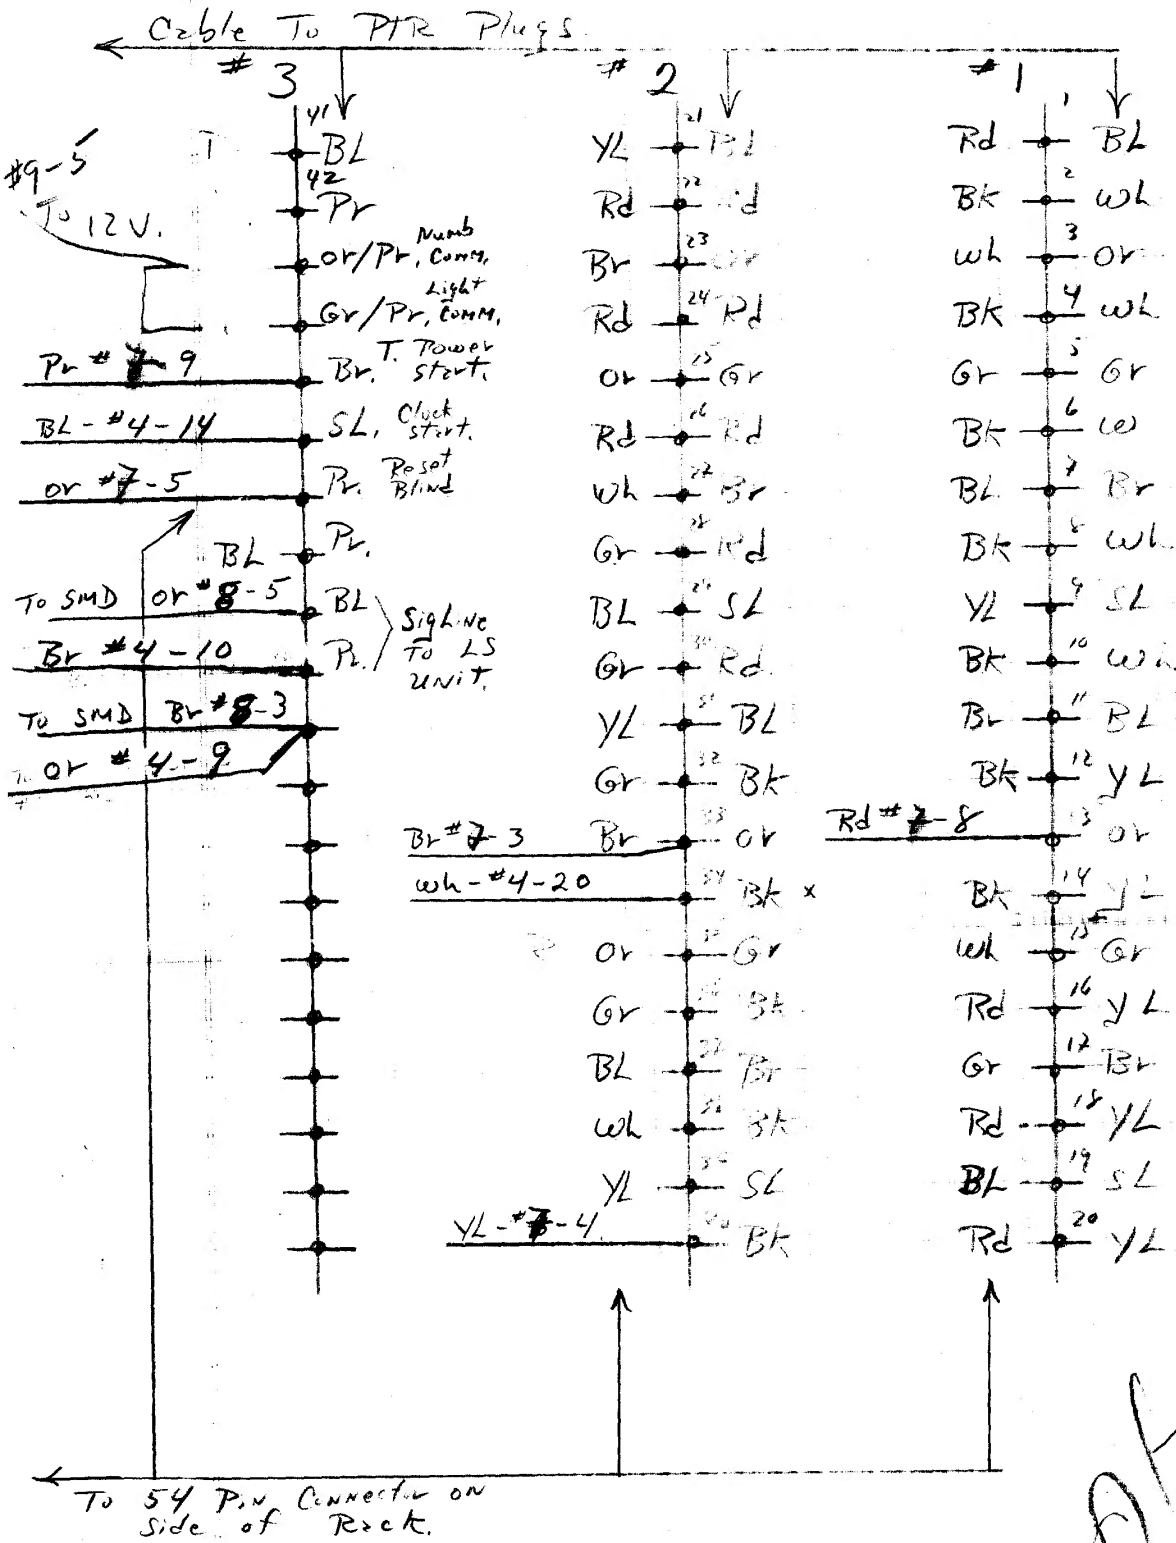 Cable To PTR Plugs
# 3
# 2
# 1
#9-5
To 12 V.
41
BL
42
Pr
or/Pr, Numb Comm,
Gr/Pr, Light Comm,
Pr # 7-9
Br. T. Power Start.
BL - #4-14
SL, Clock Start.
or #7-5
Pr. Reset Blind
BL Pr.
To SMD or #8-5 BL
Br #4-10 Pr.
Sig Line To LS Unit.
To SMD Br #8-3
or #4-9
YL 21 BL
Rd 22
Br 23
Rd 24 Rd
or Gr
Rd Rd
Wh Br
Gr Rd
BL SL
Gr Rd
YL 31 BL
Gr 32 Bk
Br #7-3 Br 33 or
Wh-#4-20 34 Bk x
or Gr
Gr Bk
BL 37 Br
Wh Bk
YL SL
YL-#7-4 Bk
Rd 1 BL
Bk 2 Wh
Wh 3 or
Bk 4 Wh
Gr 5 Gr
Bk 6 W
BL 7 Br
Bk 8 Wh
YL 9 SL
Bk 10 Wh
Br 11 BL
Bk 12 YL
Rd #7-8 13 or
Bk 14 YL
Wh 15 Gr
Rd 16 YL
Gr 17 Br
Rd 18 YL
BL 19 SL
Rd 20 YL
To 54 Pin Connector on
Side of Rack.